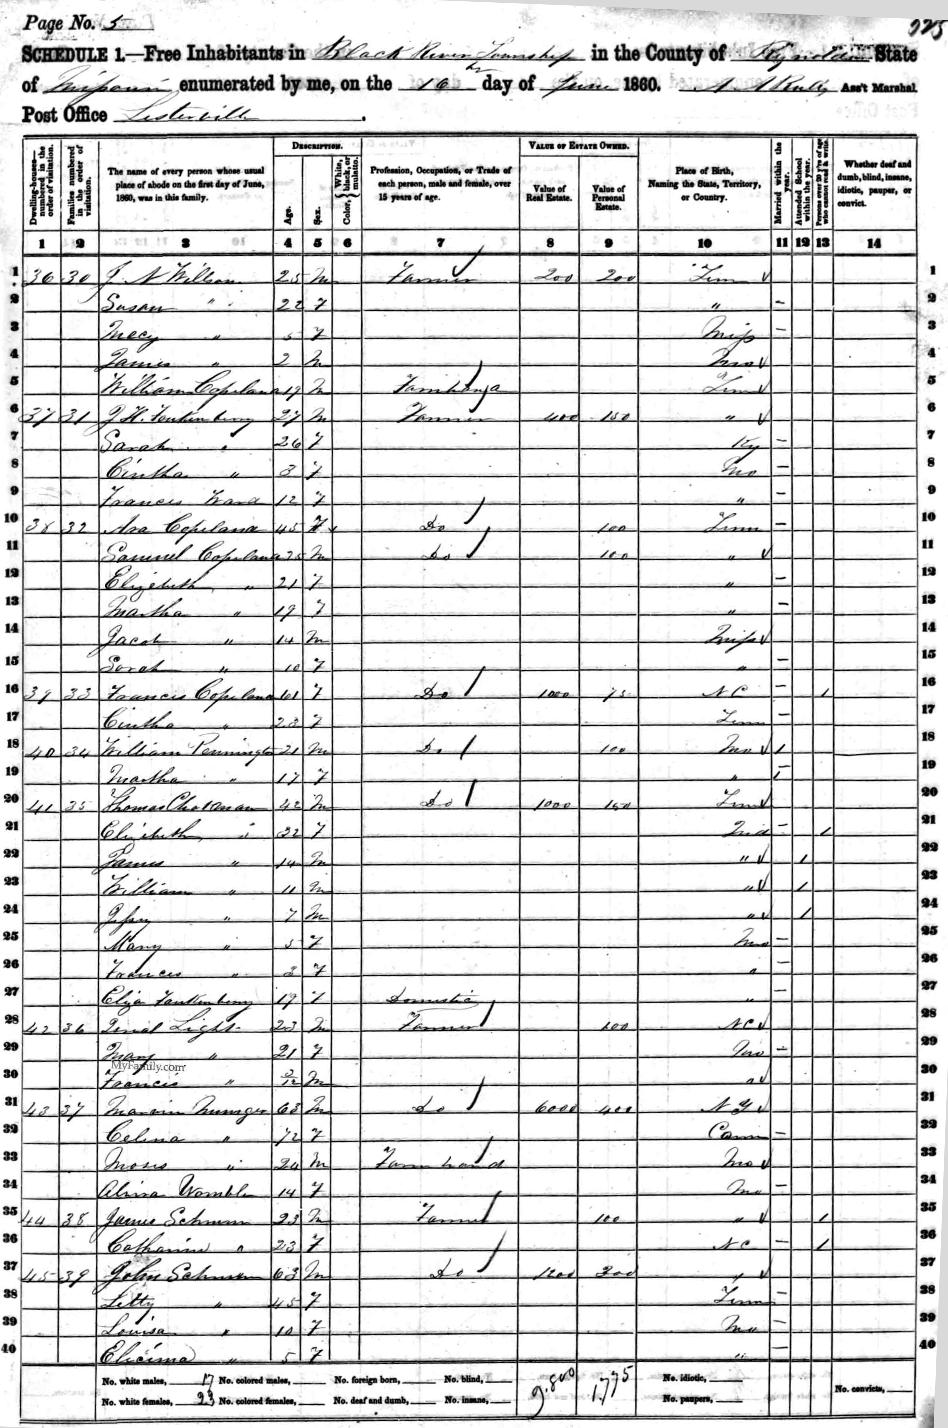 Page No. 5
225
SCHEDULE 1.—Free Inhabitants in Black River Township in the County of Reynolds State
of Missouri enumerated by me, on the 16 day of June 1860. Ass't Marshal
Post Office Lesterville.
DESCRIPTION. VALUE OF ESTATE OWNED.
Dwelling-houses—numbered in the order of visitation. Families numbered in the order of visitation. The name of every person whose usual place of abode on the first day of June, 1860, was in this family. Age. Sex. Color, White, black, or mulatto. Profession, Occupation, or Trade of each person, male and female, over 15 years of age. Value of Real Estate. Value of Personal Estate. Place of Birth, Naming the State, Territory, or Country. Married within the year. Attended School within the year. Persons over 20 y'rs of age who cannot read & write. Whether deaf and dumb, blind, insane, idiotic, pauper, or convict.
1 2 3 4 5 6 7 8 9 10 11 12 13 14
1 36 30 J N Willson 25 M Farmer 200 200 Tenn 1
2 Susan " 22 F " – 2
3 Mecy " 5 F Miss – 3
4 James " 2 M Mo 4
5 William Copeland 19 M Farmhand Tenn 5
6 37 31 J H. Fankenberry 27 M Farmer 400 150 " 6
7 Sarah " 26 F Ky – 7
8 Cintha " 3 F Mo – 8
9 Francis Ward 12 F " – 9
10 38 32 Ara Copeland 45 F Do 100 Tenn – 10
11 Samuel Copeland 25 M Do 100 " 11
12 Elizibeth " 21 F " – 12
13 Martha " 19 F " – 13
14 Jacob " 14 M Miss 14
15 Sarah " 10 F " – 15
16 39 33 Francis Copeland 61 F Do 1000 75 N C – 1 16
17 Cintha " 23 F Tenn – 17
18 40 34 William Pennington 21 M Do 100 Mo 1 18
19 Martha " 17 F " 1 19
20 41 35 Thomas 42 M Do 1000 150 Tenn 20
21 Elizibeth " 32 F Ind – 1 21
22 James " 14 M " 1 22
23 William " 11 M " 1 23
24 " 7 M " 1 24
25 Mary " 5 F Mo – 25
26 Frances " 3 F " – 26
27 Eliza Fankenberry 19 F Domestic " – 27
28 42 36 Light 23 M Farmer 100 N C 28
29 Mary " 21 F Mo – 29
MyFamily.com
30 Francis " 3/12 M " 30
31 43 37 Marvin Munger 63 M Do 6000 400 N Y 31
32 Celina " 72 F Conn – 32
33 Moses " 24 M Farm hand Mo 33
34 Womble 14 F Mo – 34
35 44 38 James 23 M Farmer 100 " 1 35
36 Catharine " 23 F N C – 1 36
37 45 39 John 63 M Do 1200 300 " 37
38 Letty " 45 F Tenn – 38
39 Louisa " 10 F Mo – 39
40 " 5 F " 40
No. white males, 17 No. colored males, No. foreign born, No. blind, 9.800 1,775 No. idiotic,
No. white females, 23 No. colored females, No. deaf and dumb, No. insane, No. paupers, No. convicts,